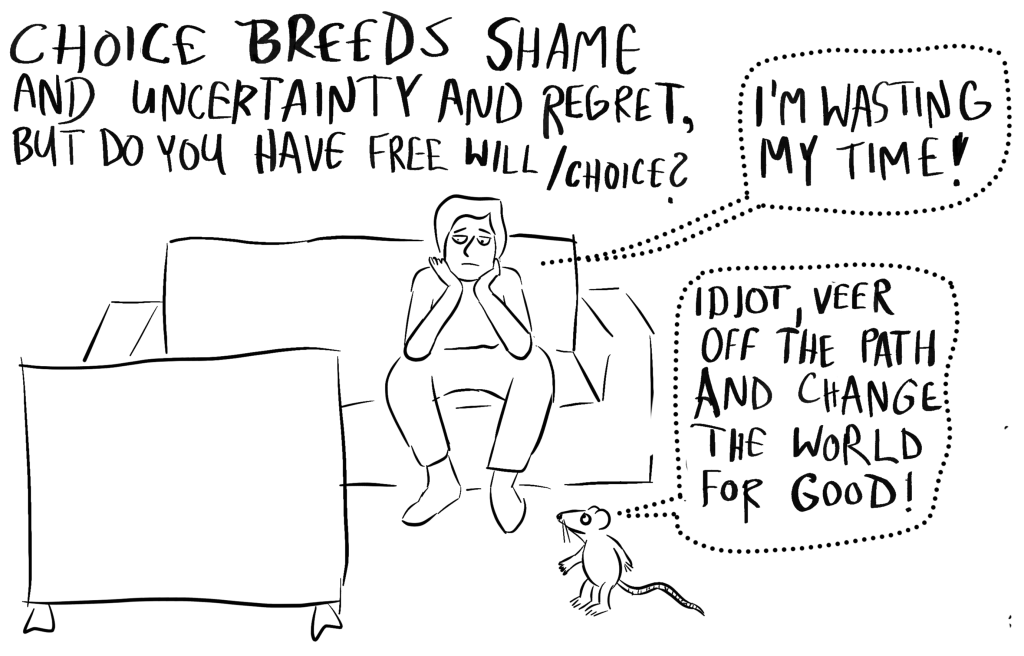 CHOICE BREEDS SHAME
AND UNCERTAINTY AND REGRET,
BUT DO YOU HAVE FREE WILL/CHOICE?
I'M WASTING
MY TIME!
IDIOT, VEER
OFF THE PATH
AND CHANGE
THE WORLD
FOR GOOD!